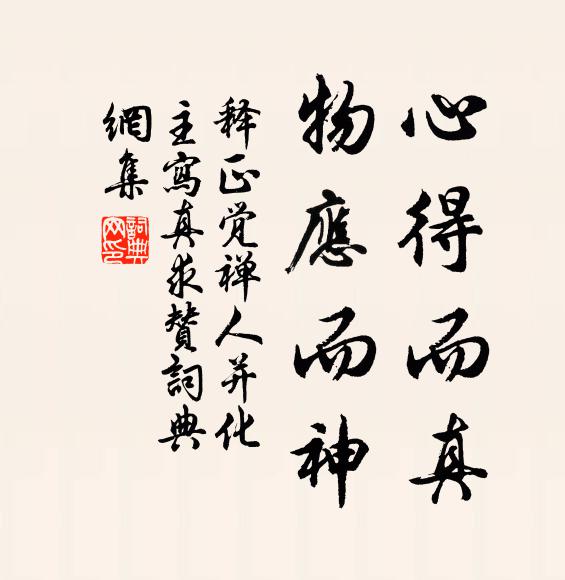 心得而真
物應而神
释正觉禅人并化
主寫真求贊詞典
網集
詞典
网印